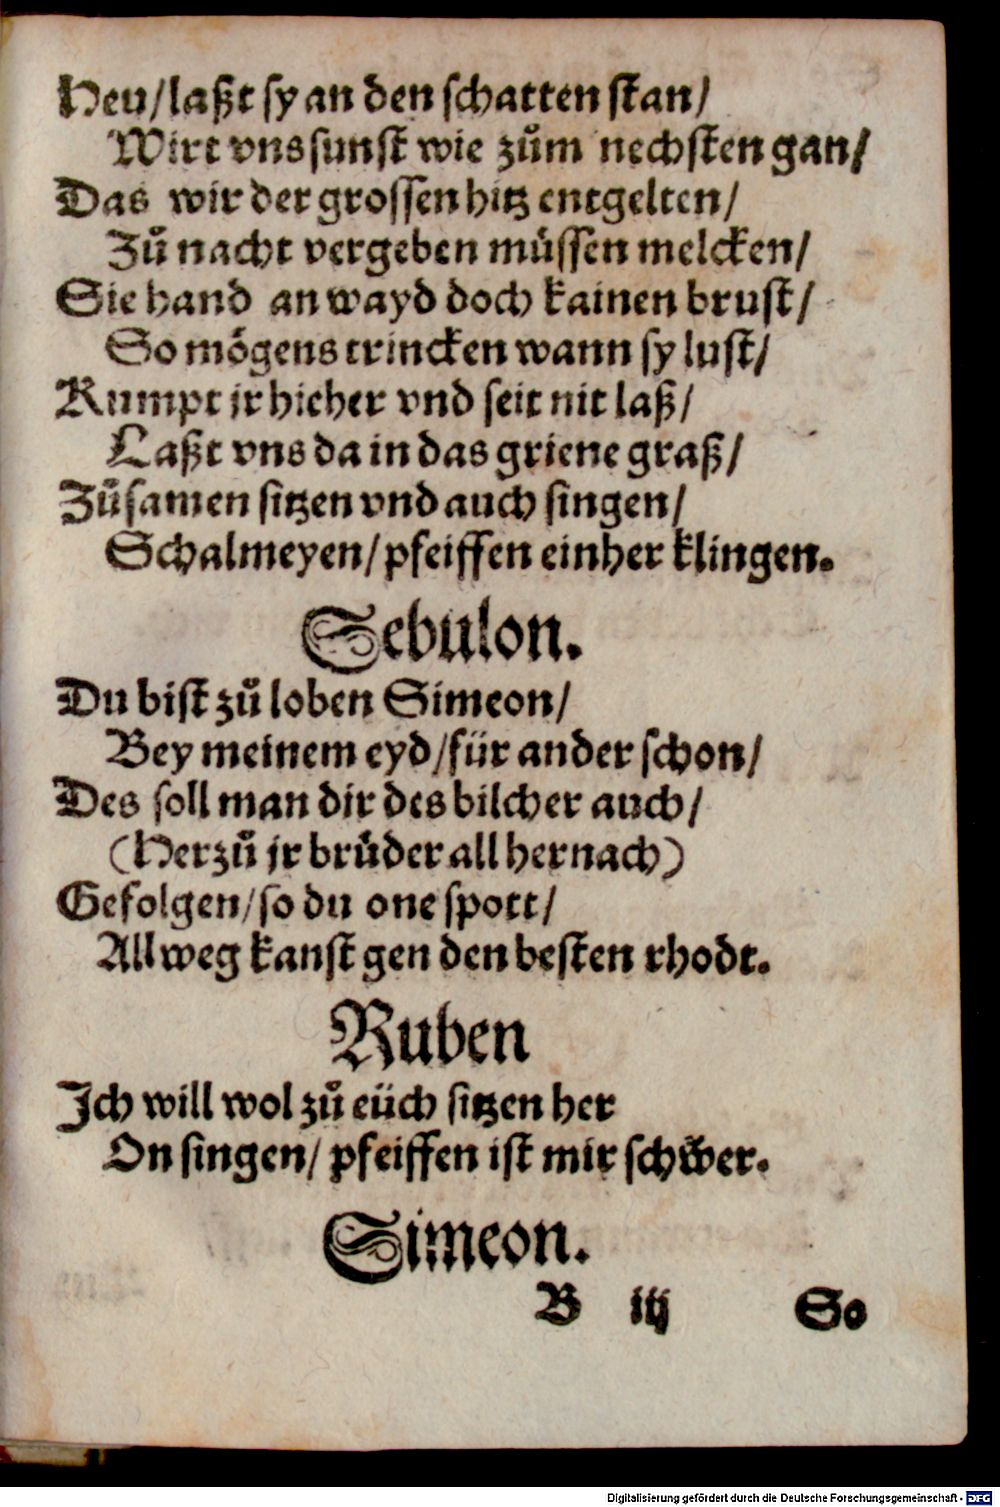 Heu/laßt sy an den schatten stan/
Wirt vns sunst wie zům nechsten gan/
Das wir der grossen hitz entgelten/
Zů nacht vergeben müssen melcken/
Sie hand an wayd doch kainen brust/
So mögens trincken wann sy lust/
Kumpt jr hieher vnd seit nit laß/
Laßt vns da in das griene graß/
Zůsamen sitzen vnd auch singen/
Schalmeyen/pfeiffen einher klingen.
Sebulon.
Du bist zů loben Simeon/
Bey meinem eyd/für ander schon/
Des soll man dir des bilcher auch/
(Herzů jr brůder all hernach)
Gefolgen/so du one spott/
Allweg kanst gen den besten rhodt.
Ruben
Ich will wol zů eüch sitzen her
On singen/ pfeiffen ist mir schwer.
Simeon.
B iij So
Digitalisierung gefördert durch die Deutsche Forschungsgemeinschaft - DFG